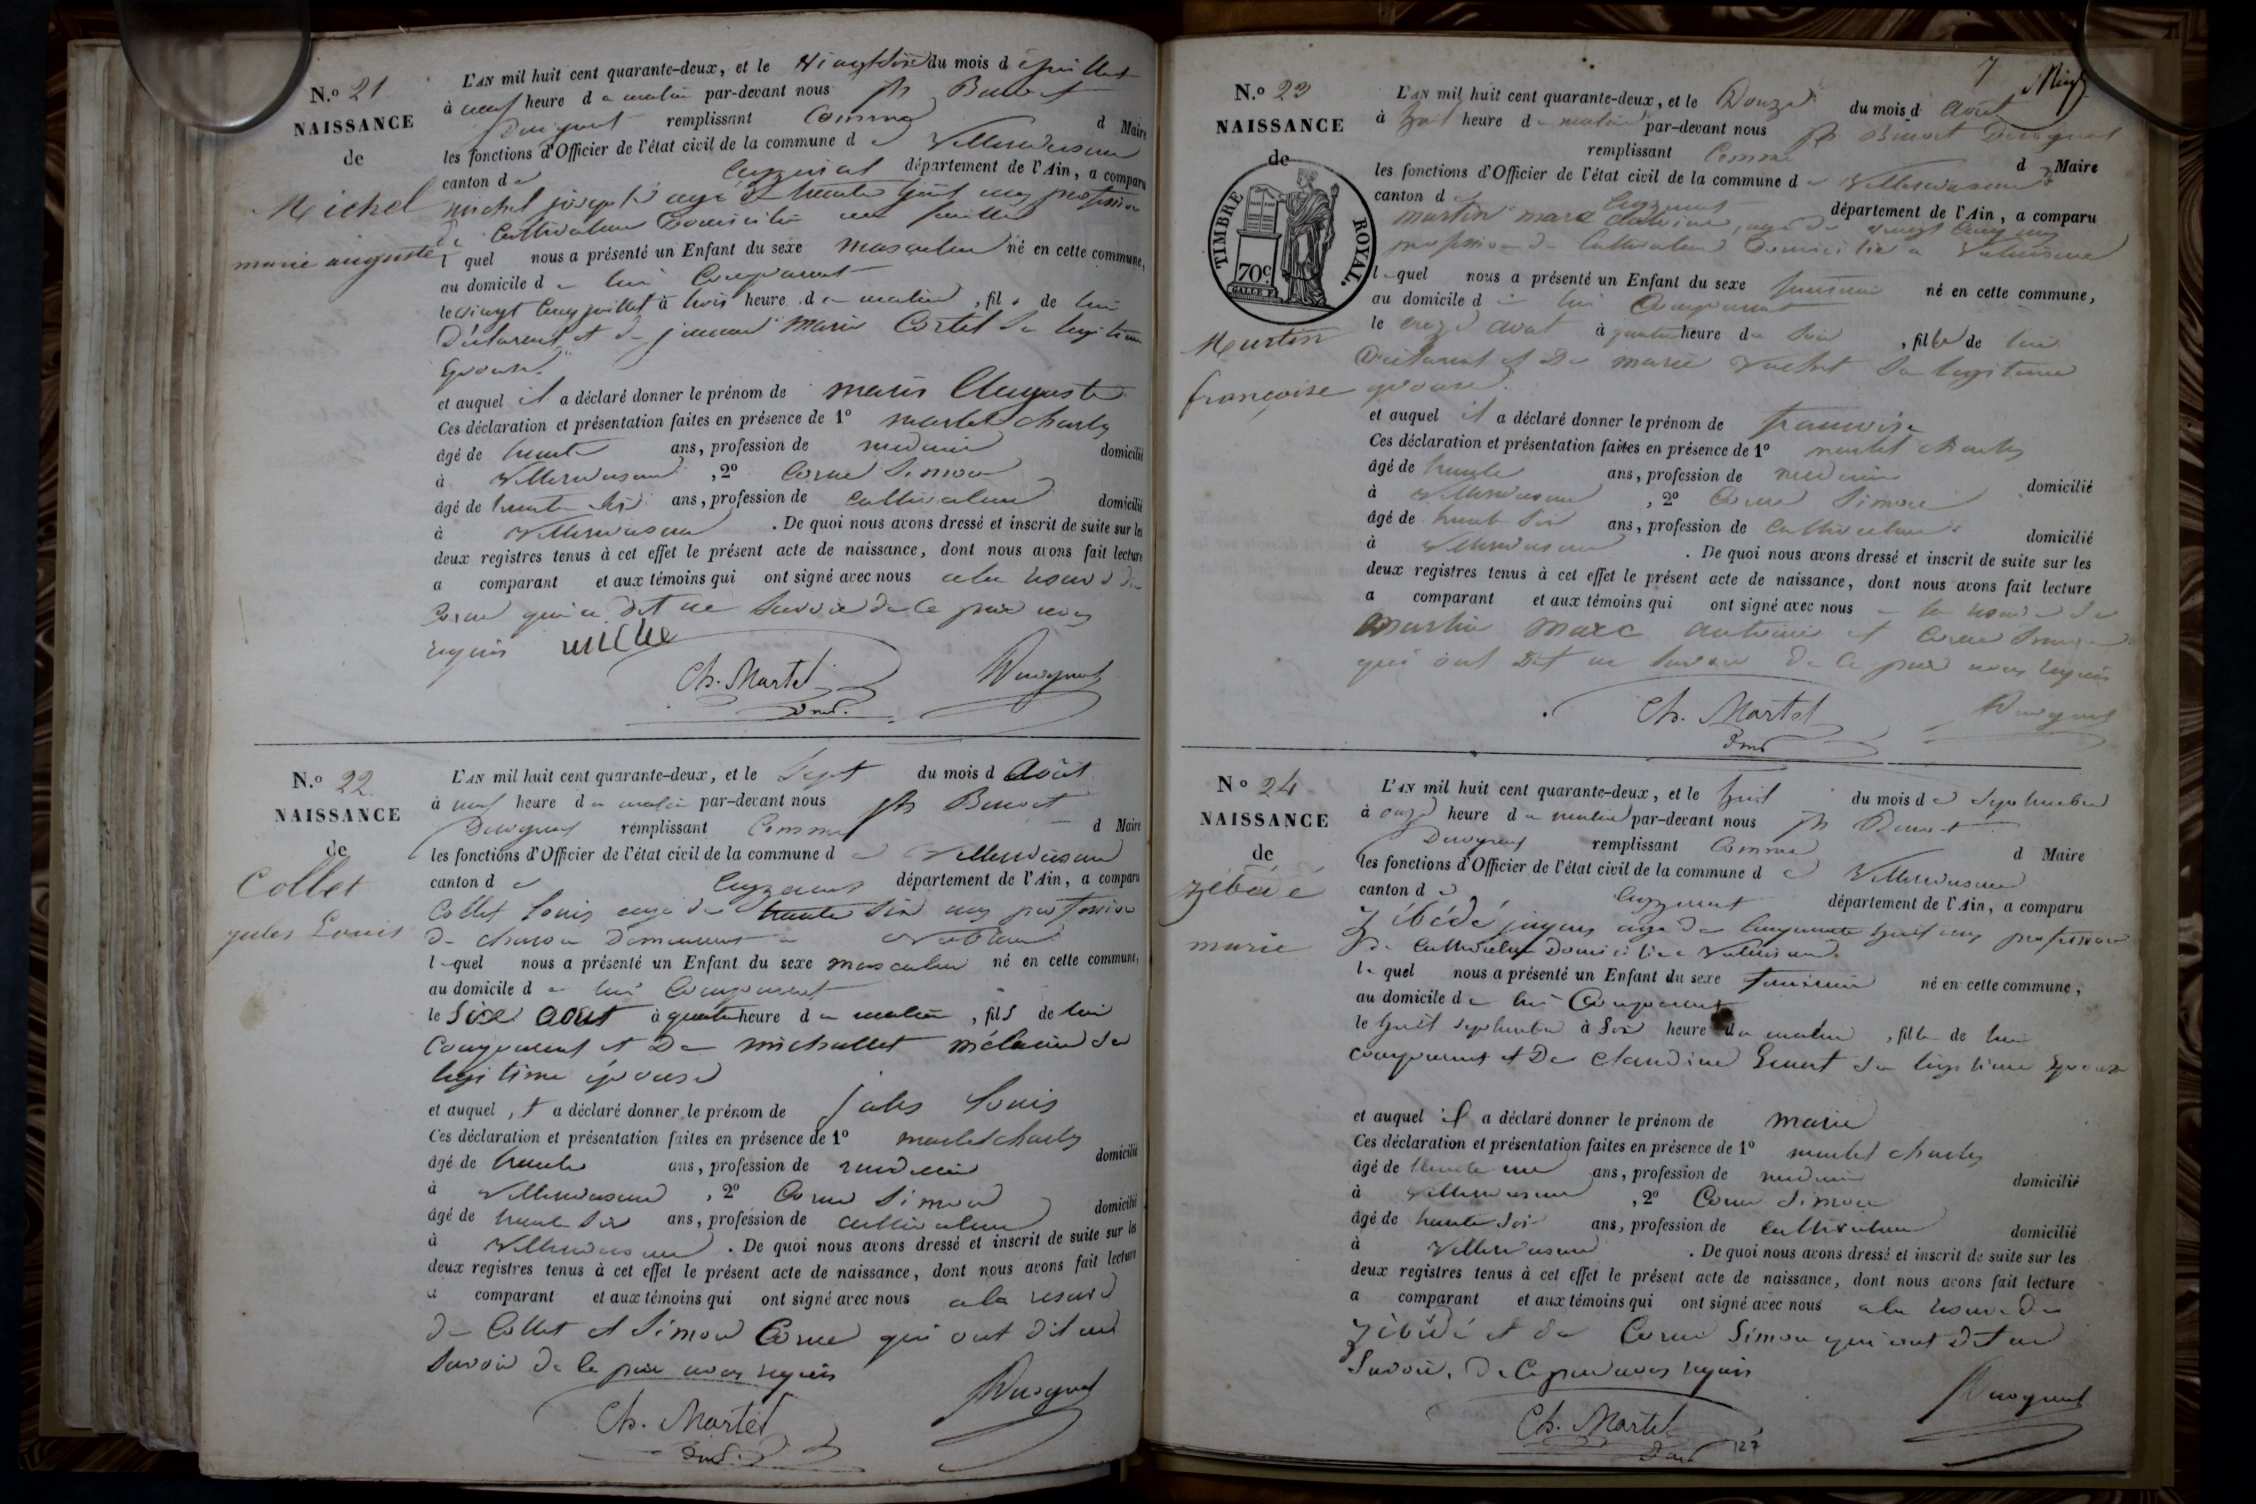 N.º 21
NAISSANCE
de
Michel
marie auguste
L'AN mil huit cent quarante-deux, et le vingt six du mois d juillet
à neuf heure du matin par-devant nous Benoit
remplissant comme d Maire
les fonctions d'Officier de l'état civil de la commune d
canton d département de l'Ain, a comparu
michel agé de trente huit ans profession
de Cultivateur Domicilié
l quel nous a présenté un Enfant du sexe masculin né en cette commune,
au domicile d lui Comparant
le vingt cinq juillet à trois heure du matin, fils de lui
Déclarant et de marie sa legitime
épouse
et auquel il a déclaré donner le prénom de marie Auguste
Ces déclaration et présentation faites en présence de 1º martel charles
âgé de trente ans, profession de medecin domicilié
à , 2º Corne Simon
âgé de trente six ans, profession de cultivateur domicilié
à . De quoi nous avons dressé et inscrit de suite sur les
deux registres tenus à cet effet le présent acte de naissance, dont nous avons fait lecture
a comparant et aux témoins qui ont signé avec nous a la reserve de
Corne qui a dit ne savoir de ce par nous
requis miche
Ch. Martel
N.º 22
NAISSANCE
de
Collet
jules Louis
L'AN mil huit cent quarante-deux, et le sept du mois d Août
à neuf heure du matin par-devant nous Benoit
remplissant comme d Maire
les fonctions d'Officier de l'état civil de la commune d
canton d département de l'Ain, a comparu
Collet Louis agé de trente six ans profession
de
l quel nous a présenté un Enfant du sexe masculin né en cette commune,
au domicile d lui Comparant
le Six aout à quatre heure du matin, fils de lui
Comparant et De michallet mélanie sa
legitime épouse
et auquel il a déclaré donner le prénom de jules Louis
Ces déclaration et présentation faites en présence de 1º martel charles
âgé de trente ans, profession de medecin domicilié
à , 2º Corne Simon
âgé de trente six ans, profession de cultivateur domicilié
à . De quoi nous avons dressé et inscrit de suite sur les
deux registres tenus à cet effet le présent acte de naissance, dont nous avons fait lecture
a comparant et aux témoins qui ont signé avec nous a la reserve
de Collet et Simon Corne qui ont dit ne
savoir de ce par nous requis
Ch. Martel
7
N.º 23
NAISSANCE
de
TIMBRE ROYAL.
70 c.
Martin
françoise
L'AN mil huit cent quarante-deux, et le Douze du mois d Août
à huit heure du matin par-devant nous Benoit
remplissant Comme d Maire
les fonctions d'Officier de l'état civil de la commune d
canton d département de l'Ain, a comparu
martin marc antoine, agé de vingt cinq ans
profession de Cultivateur Domicilié a
l quel nous a présenté un Enfant du sexe feminin né en cette commune,
au domicile d lui Comparant
le onze aout à quatre heure du soir, fille de lui
Déclarant et De marie sa legitime
épouse.
et auquel il a déclaré donner le prénom de francoise
Ces déclaration et présentation faites en présence de 1º martel charles
âgé de trente ans, profession de medecin domicilié
à , 2º Corne Simon
âgé de trente six ans, profession de Cultivateur domicilié
à . De quoi nous avons dressé et inscrit de suite sur les
deux registres tenus à cet effet le présent acte de naissance, dont nous avons fait lecture
a comparant et aux témoins qui ont signé avec nous a la reserve de
martin marc antoine et Corne Simon
qui ont dit ne savoir de ce par nous requis
Ch. Martel
N.º 24
NAISSANCE
de
zébédé
marie
L'AN mil huit cent quarante-deux, et le huit du mois de septembre
à onze heure du matin par-devant nous Benoit
remplissant Comme d Maire
les fonctions d'Officier de l'état civil de la commune d
canton d département de l'Ain, a comparu
zébédé agé de cinquante huit ans profession
de Cultivateur Domicilié a
l quel nous a présenté un Enfant du sexe feminin né en cette commune,
au domicile d lui Comparant
le huit septembre à six heure du matin, fille de lui
comparant et De claudine sa legitime épouse
et auquel il a déclaré donner le prénom de marie
Ces déclaration et présentation faites en présence de 1º martel charles
âgé de trente une ans, profession de medecin domicilié
à , 2º Corne Simon
âgé de trente six ans, profession de Cultivateur domicilié
à . De quoi nous avons dressé et inscrit de suite sur les
deux registres tenus à cet effet le présent acte de naissance, dont nous avons fait lecture
a comparant et aux témoins qui ont signé avec nous a la reserve de
zébédé et de Corne Simon qui ont dit ne
savoir de ce par nous requis
Ch. Martel
127